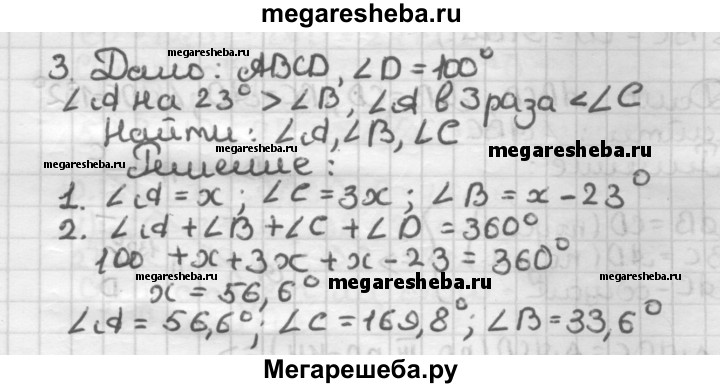 megaresheba.ru
megaresheba.ru
3. Дано: ABCD, ∠D = 100°
megaresheba.ru
∠A на 23° > ∠B, ∠A в 3 раза < ∠C
Найти: ∠A, ∠B, ∠C
megaresheba.ru
megaresheba.ru
Решение:
megaresheba.ru
1. ∠A = x; ∠C = 3x; ∠B = x - 23°
2. ∠A + ∠B + ∠C + ∠D = 360°
100 + x + 3x + x - 23 = 360°
megaresheba.ru
megaresheba.ru
megaresheba.ru
x = 56,6°
∠A = 56,6°; ∠C = 169,8°; ∠B = 33,6°
Мегарешеба.ру